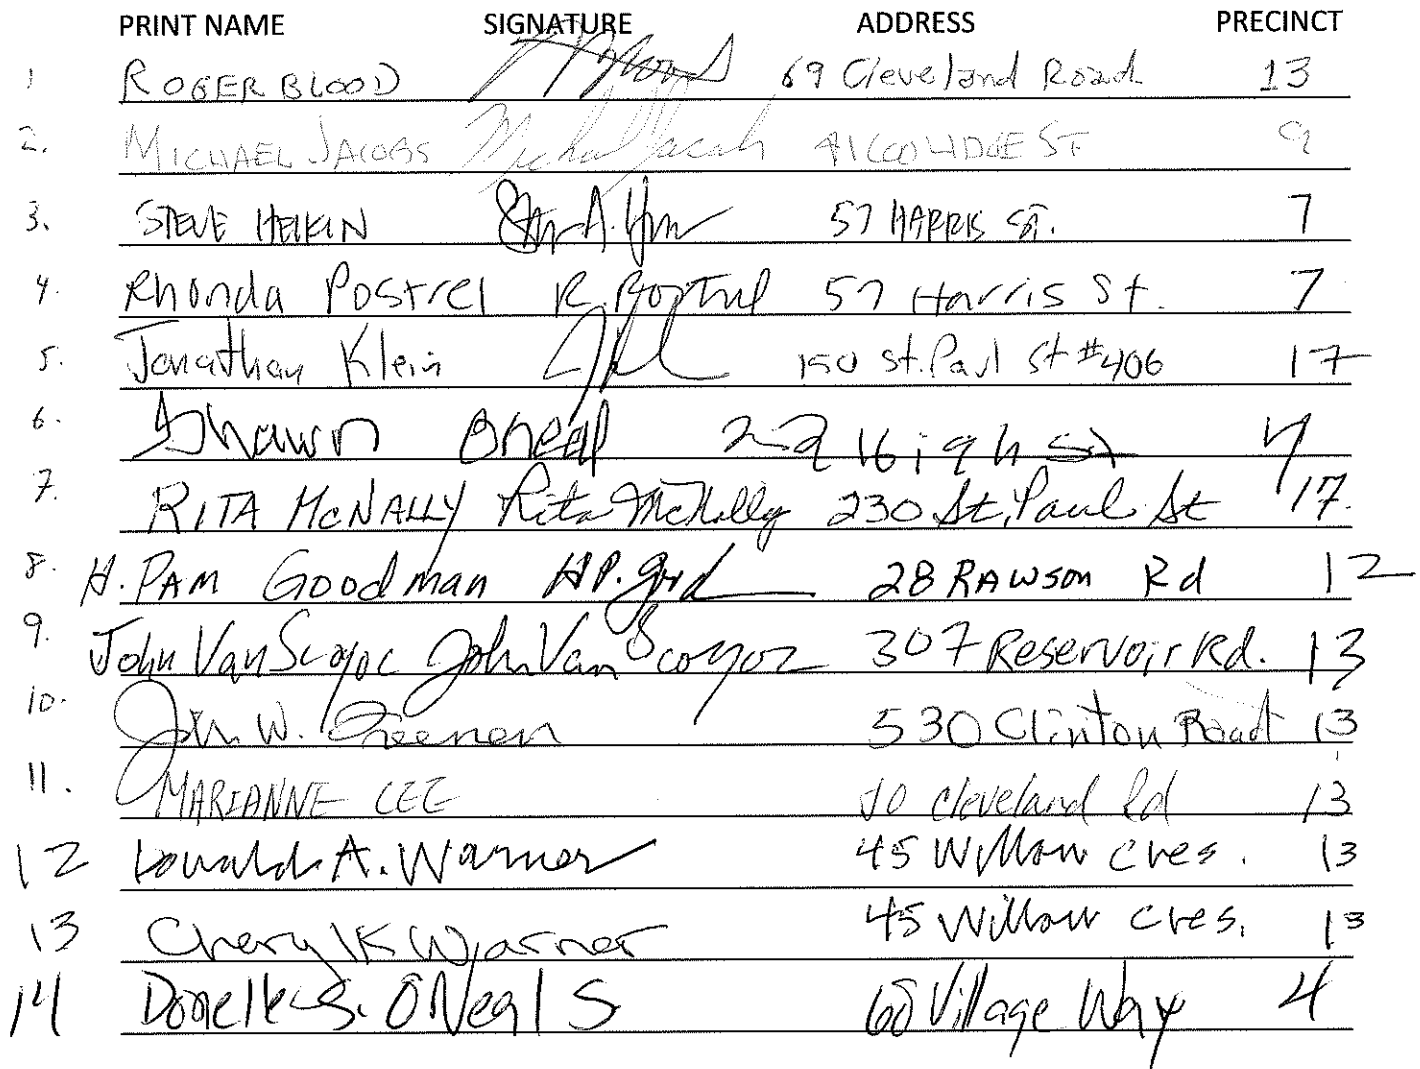 PRINT NAME SIGNATURE ADDRESS PRECINCT
1 ROGER BLOOD 69 Cleveland Road 13
2. MICHAEL JACOBS Michael Jacobs 41 COOLIDGE ST 9
3. STEVE HEIKIN 57 HARRIS ST. 7
4. Rhonda Postrel R. Postrel 57 Harris St. 7
5. Jonathan Klein 150 St. Paul St #406 17
6. Shawn Oneal 22 High St 4
7. RITA MCNALLY Rita McNally 230 St. Paul St 17
8. H. PAM Goodman 28 RAWSON Rd 12
9. John VanScoyoc John Van Scoyoc 307 Reservoir Rd. 13
10. W. Freeman 530 Clinton Road 13
11. MARIANNE LEE Cleveland Rd 13
12 Donald A. Warner 45 Willow Cres. 13
13 Cheryl K Warner 45 Willow Cres. 13
14 Donelle S. O'Neal S 68 Village Way 4